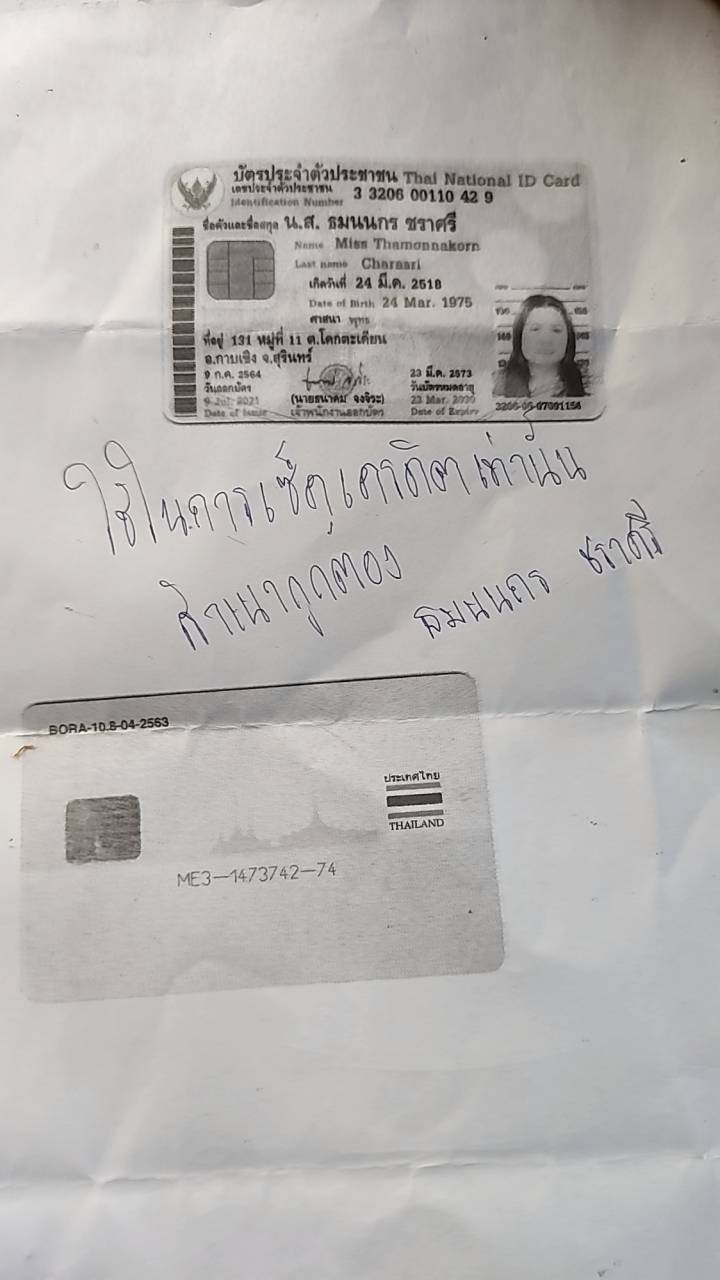 บัตรประจำตัวประชาชน Thai National ID Card
เลขประจำตัวประชาชน 3 3206 00110 42 9
Identification Number
ชื่อตัวและชื่อสกุล น.ส. ธมนนกร ชราศรี
Name Miss Thamonnakorn
Last name Charasri
เกิดวันที่ 24 มี.ค. 2518
Date of Birth 24 Mar. 1975
ศาสนา พุทธ
ที่อยู่ 131 หมู่ที่ 11 ต.โคกตะเคียน
อ.กาบเชิง จ.สุรินทร์
9 ก.ค. 2564
วันออกบัตร
9 Jul. 2021
Date of Issue
(นายธนาคม จงจิระ)
เจ้าพนักงานออกบัตร
23 มี.ค. 2573
วันบัตรหมดอายุ
23 Mar. 2030
Date of Expiry
3206-05-07091156
ใช้ในการเช็คเครดิตเท่านั้น
สำเนาถูกต้อง
ธมนนกร ชราศรี
BORA-10.8-04-2563
ประเทศไทย
THAILAND
ME3-1473742-74